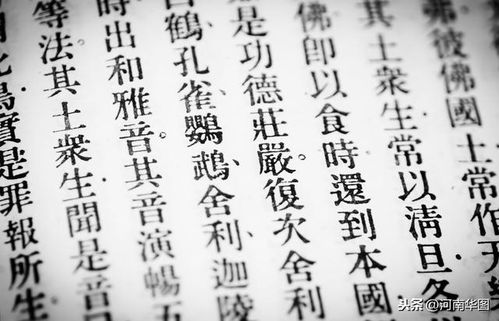 弗彼佛國土常作天
其土衆生常以淸旦各
佛卽以食時還到本國
是功德莊嚴。復次舍利
白鶴、孔雀、鸚鵡、舍利、迦陵
時出和雅音。其音演暢五
等法。其土衆生聞是音
此鳥實是罪報所生
头条 @河南华图